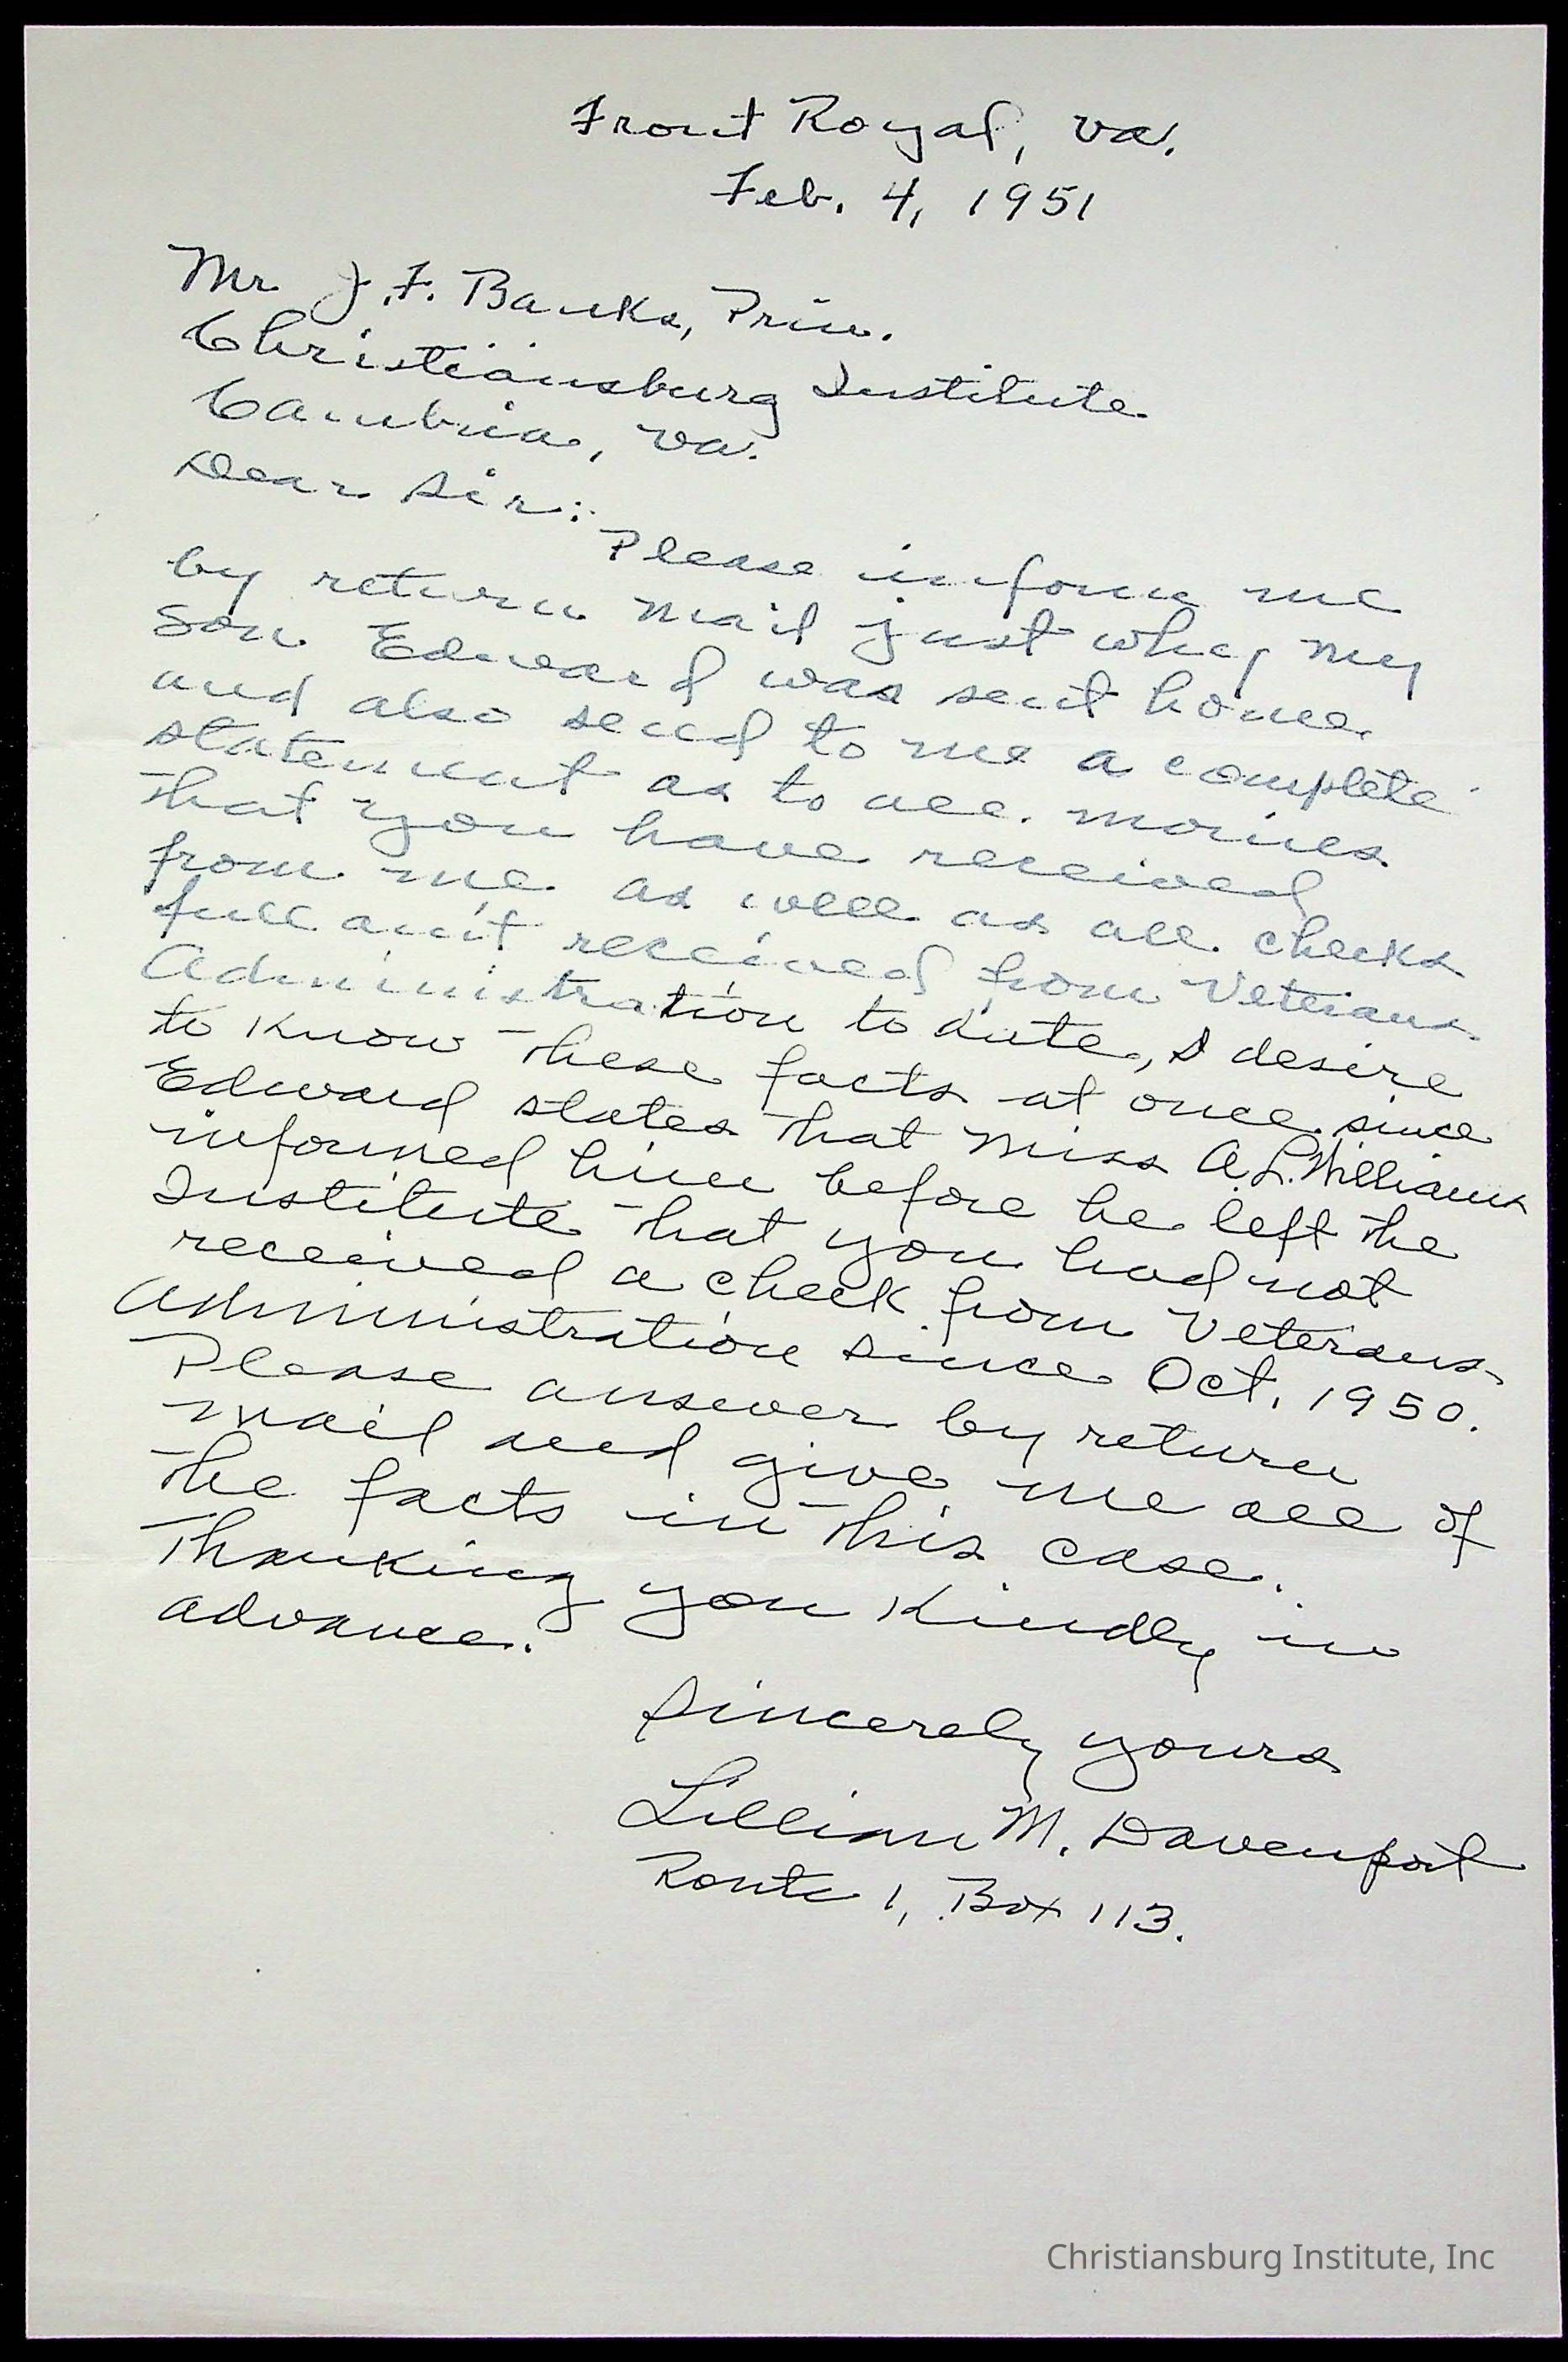 Front Royal, Va.
Feb. 4, 1951
Mr. J.F. Banks, Prin.
Christiansburg Institute
Cambria, Va.
Dear Sir:
Please inform me
by return mail just why my
son Edward was sent home
and also send to me a complete
statement as to all monies
that you have received
from me as well as all checks
full am't received from Veterans
Administration to date, I desire
to know these facts at once since
Edward states that Miss A.L. Williams
informed him before he left the
Institute that you had not
received a check from Veterans
Administration since Oct. 1950.
Please answer by return
mail and give me all of
the facts in this case.
Thanking you kindly in
advance.
Sincerely yours
Lillian M. Davenport
Route 1, Box 113.
Christiansburg Institute, Inc